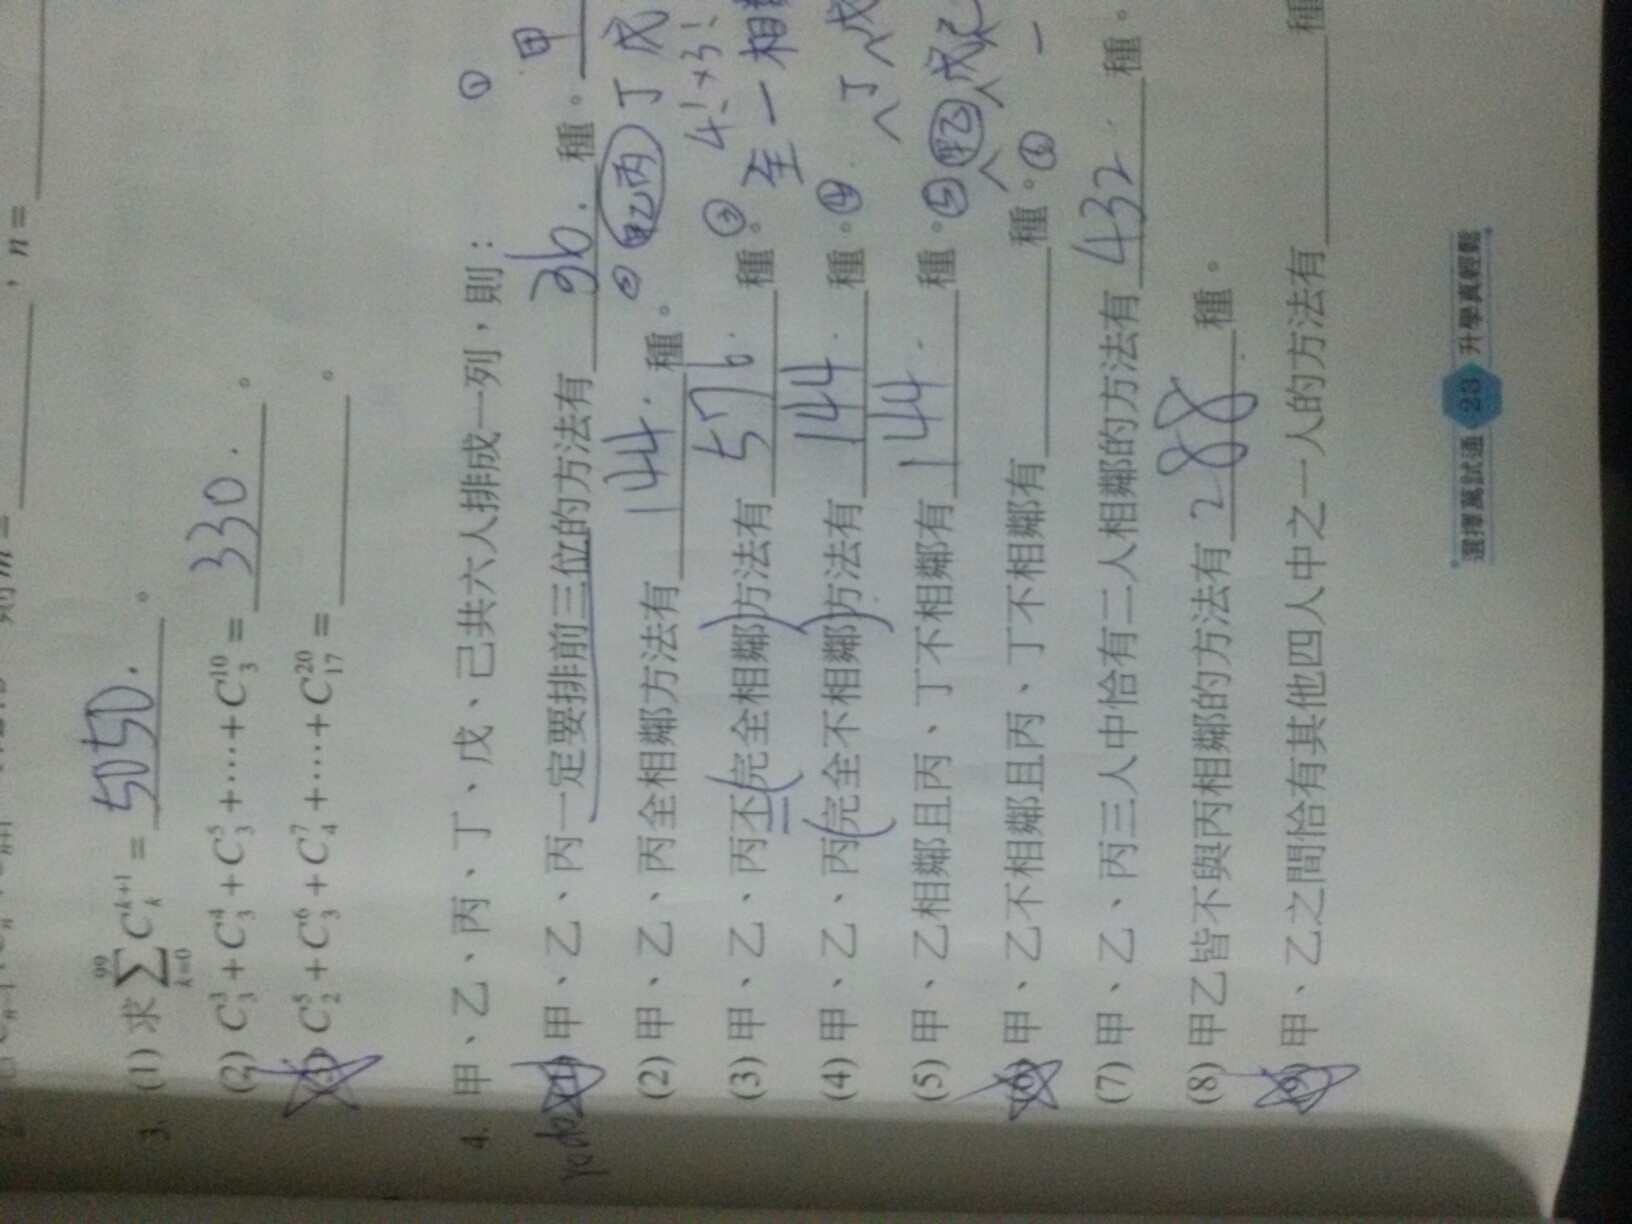 , n =
3. (1) 求 \sum_{k=0}^{99} C_k^{k+1} = 5050. 。
(2) C_3^3 + C_3^4 + C_3^5 + ⋯⋯ + C_3^{10} = 330. 。
(3) C_2^5 + C_3^6 + C_4^7 + ⋯⋯ + C_{17}^{20} = 。
4. 甲、乙、丙、丁、戊、己共六人排成一列，則：
① 甲
(1) 甲、乙、丙一定要排前三位的方法有 36. 種。
② 甲乙丙 丁 戊
(2) 甲、乙、丙全相鄰方法有 144. 種。
4!×3!
(3) 甲、乙、丙不完全相鄰方法有 576. 種。 ③
至一相
(4) 甲、乙、丙完全不相鄰方法有 144. 種。 ④
丁 戊
(5) 甲、乙相鄰且丙、丁不相鄰有 144. 種。 ⑤ 甲乙 戊 己
(6) 甲、乙不相鄰且丙、丁不相鄰有 種。 ⑥
(7) 甲、乙、丙三人中恰有二人相鄰的方法有 432. 種。
(8) 甲乙皆不與丙相鄰的方法有 288. 種。
(9) 甲、乙之間恰有其他四人中之一人的方法有 種
選擇萬試通 23 升學真輕鬆